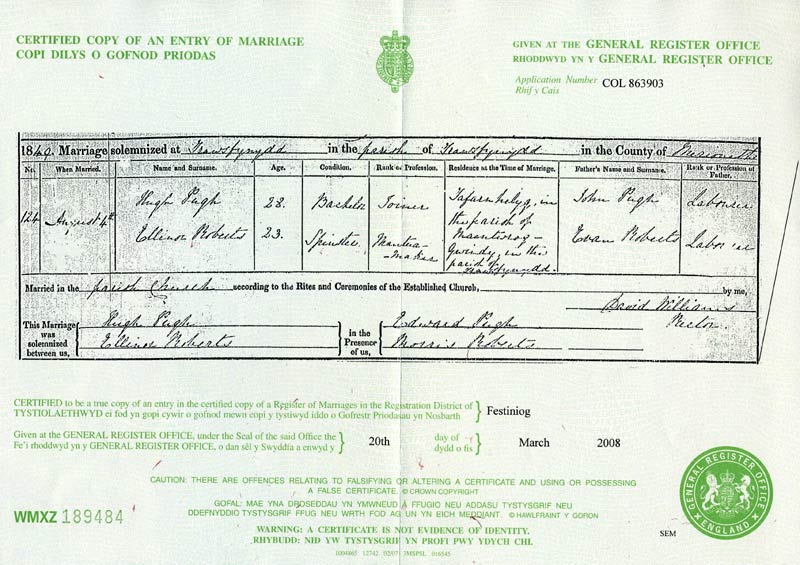 CERTIFIED COPY OF AN ENTRY OF MARRIAGE
COPI DILYS O GOFNOD PRIODAS
GIVEN AT THE GENERAL REGISTER OFFICE
RHODDWYD YN Y GENERAL REGISTER OFFICE
Application Number COL 863903
Rhif y Cais
1849. Marriage solemnized at Trawsfynydd in the parish of Trawsfynydd in the County of Merioneth
No. When Married. Name and Surname. Age. Condition. Rank or Profession. Residence at the Time of Marriage. Father's Name and Surname. Rank or Profession of Father.
124 August 4th
Hugh Pugh 28. Bachelor Joiner Tafarnhelyg, in the parish of Maentwrog John Pugh Labourer
Ellinor Roberts 23. Spinster Mantua-Maker in the parish of Trawsfynydd. Evan Roberts Labourer
Married in the parish Church according to the Rites and Ceremonies of the Established Church, by me,
David Williams
Rector.
This Marriage was solemnized between us,
Hugh Pugh
Ellinor Roberts
in the Presence of us,
Edward Pugh
Morris Roberts
CERTIFIED to be a true copy of an entry in the certified copy of a Register of Marriages in the Registration District of
TYSTIOLAETHWYD ei fod yn gopi cywir o gofnod mewn copi y tystiwyd iddo o Gofrestr Priodasau yn Nosbarth
Festiniog
Given at the GENERAL REGISTER OFFICE, under the Seal of the said Office the
Fe'i rhoddwyd yn y GENERAL REGISTER OFFICE, o dan sêl y Swyddfa a enwyd y
20th day of March 2008
dydd o fis
CAUTION: THERE ARE OFFENCES RELATING TO FALSIFYING OR ALTERING A CERTIFICATE AND USING OR POSSESSING
A FALSE CERTIFICATE. © CROWN COPYRIGHT
GOFAL: MAE YNA DROSEDDAU YN YMWNEUD Â FFUGIO NEU ADDASU TYSTYSGRIF NEU
DDEFNYDDIO TYSTYSGRIF FFUG NEU WRTH FOD AG UN YN EICH MEDDIANT. © HAWLFRAINT Y GORON
WARNING: A CERTIFICATE IS NOT EVIDENCE OF IDENTITY.
RHYBUDD: NID YW TYSTYSGRIF YN PROFI PWY YDYCH CHI.
WMXZ 189484
SEM
1004865 12742 02/07 3MSPSL 016545
GENERAL REGISTER OFFICE
ENGLAND